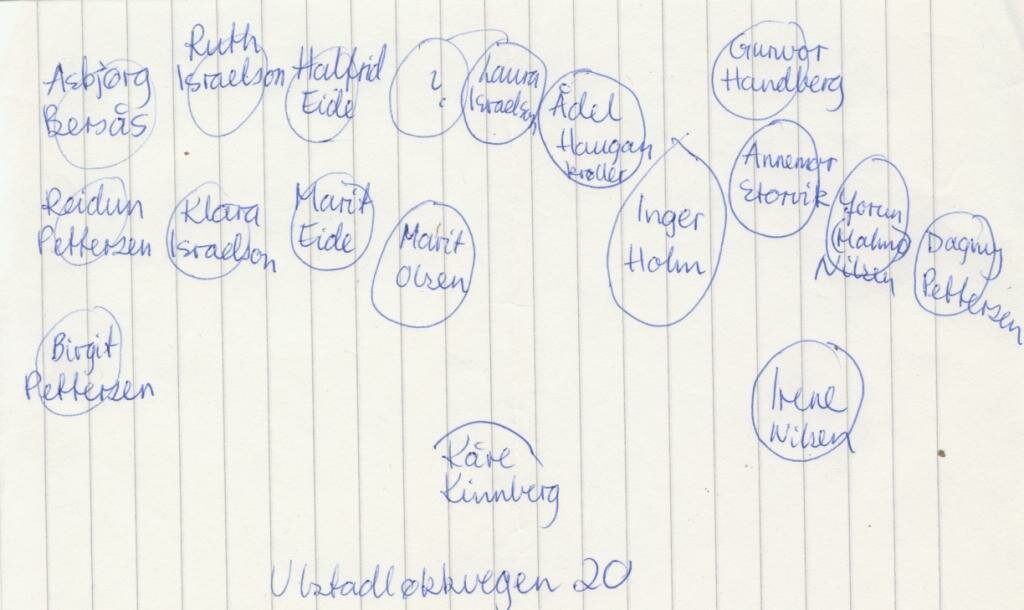 Asbjørg
Bersås
Ruth
Israelson
Halfrid
Eide
?
Laura
Israelson
Ådel
Haugan
Gunvor
Handberg
Reidun
Pettersen
Klara
Israelson
Marit
Eide
Marit
Olsen
Inger
Holm
Annemor
Storvik
Jorun
Malmo
Nilsen
Dagny
Pettersen
Birgit
Pettersen
Irene
Nilsen
Kåre
Kinnberg
Ulstadløkkvegen 20